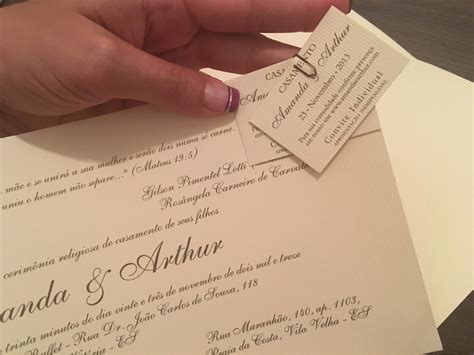 mãe e se unirá a sua mulher e serão dois numa só carne.
uniu o homem não separe..." (Mateus 19:5)
Gilson Pimentel Lotti
Rosângela Carneiro de Carvalh
cerimônia religiosa de casamento de seus filhos
anda & Arthur
trinta minutos do dia vinte e três de novembro de dois mil e treze
Buffet - Rua Dr. João Carlos de Souza, 118
ória - ES
Rua Maranhão, 140, ap. 1103,
Praia da Costa, Vila Velha - ES
CAS
Am
CASAMENTO
Amanda & Arthur
23 - Novembro - 2013
Para sua comodidade confirme presença
em nosso site www.amandaearthur.com
Convite Individual
APRESENTAÇÃO INDISPENSÁVEL